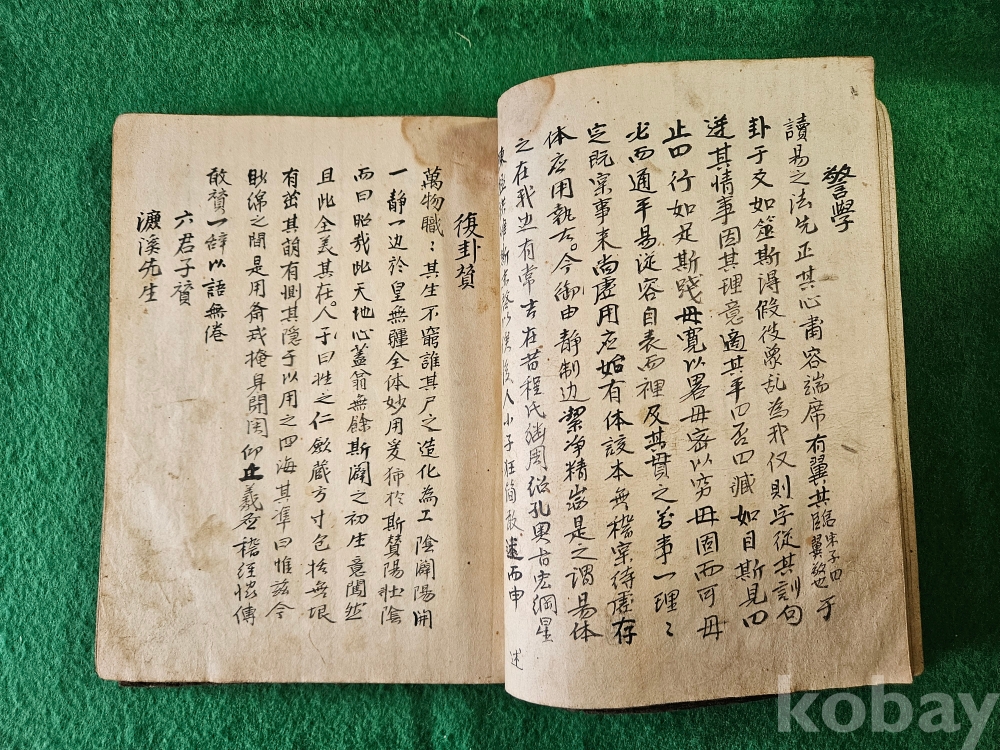 警學
讀易之法先正其心肅容端席有翼其臨朱子曰翼敬也于
卦于爻如筮斯得假彼象乱為我仪則字從其訓句
逆其情事因其理意適其平曰否曰臧如目斯見曰
止曰行如足斯踐毋寬以畧毋密以窮毋固而可毋
必而通平易從容自表而裡及其貫之万事一理〻
定既実事来尚虛用应始有体該本無稽実待虛存
体应用執古今御由静制边潔净精微是之謂易体
之在我边有常吉在昔程氏継周紹孔奥旨宏綱星
陳極拱惟斯未啓以俟後人小子狂簡敢述而申
述
復卦贊
萬物職〻其生不窮誰其尸之造化為工陰闔陽開
一静一边於皇無疆全体妙用奚独於斯贊陽壮陰
而曰昭哉此天地心盖翕無餘斯闢之初生意闖然
且此全美其在人于曰性之仁斂蔵方寸包括無垠
有茁其萌有惻其隱于以用之四海其準曰惟玆今
眇綿之間是用齋戒掩身閉関仰止羲图稽經協傳
敢贊一辞以語無倦
六君子贊
濂溪先生
kobay